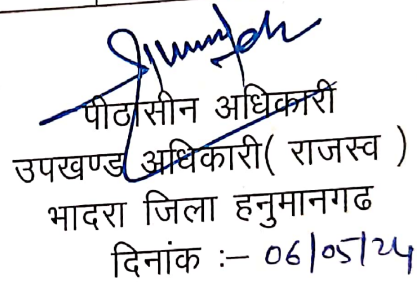 पीठासीन अधिकारी
उपखण्ड अधिकारी( राजस्व )
भादरा जिला हनुमानगढ
दिनांक :– 06/05/24